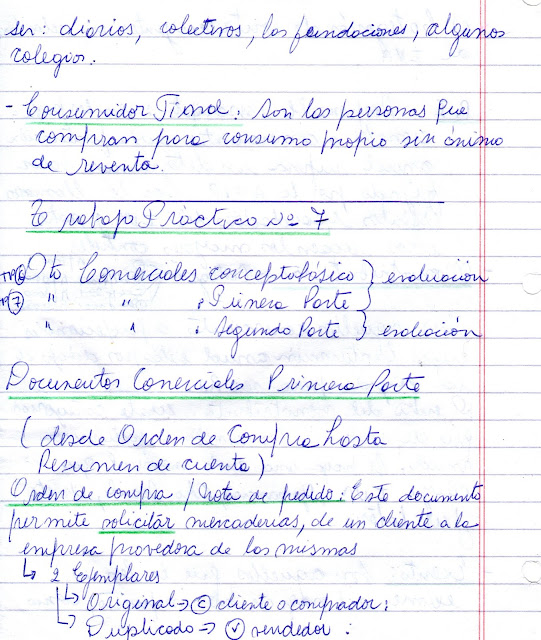 ser: diarios, colectivos, las fundaciones, algunos
colegios.
- Consumidor Final: Son las personas que
compran para consumo propio sin ánimo
de reventa.
Trabajo Práctico Nº 7
TP6 Dto Comerciales concepto básico } evaluación
TP7 " " : Primera Parte }
" " : Segunda Parte } evaluación
Documentos Comerciales Primera Parte
(desde Orden de Compra hasta
Resumen de cuenta)
Orden de compra / Nota de pedido: Este documento
permite solicitar mercaderías, de un cliente a la
empresa provedora de las mismas
↳ 2 Ejemplares
↳ Original → C cliente o comprador:
↳ Duplicado → V vendedor: